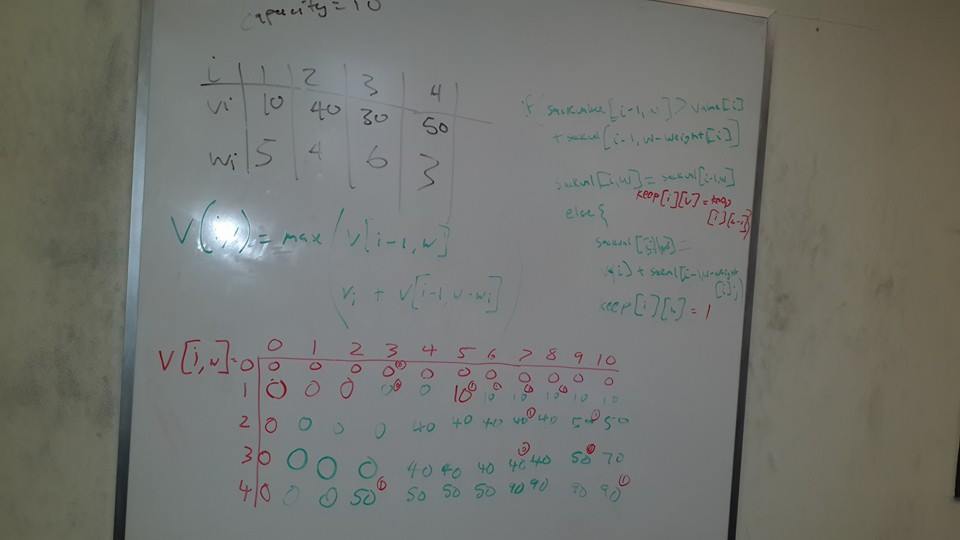 capacity = 10
i 1 2 3 4
vi 10 40 30 50
wi 5 4 6 3
V(i,j) = max ( V[i-1, w]
vi + V[i-1, w-wi] )
if sackvalue[i-1, w] > value[i]
+ sackval[i-1, w-weight[i]]
sackval[i,w] = sackval[i-1,w]
keep[i][w] = keep
else{
keep[i][w] = 1
V[i,w]= 0 1 2 3 4 5 6 7 8 9 10
0 0 0 0 0 0 0 0 0 0 0 0
1 0 0 0 0 0 10 10 10 10 10 10
2 0 0 0 0 40 40 40 40 40 50 50
3 0 0 0 0 40 40 40 40 40 50 70
4 0 0 0 50 50 50 50 90 90 90 90